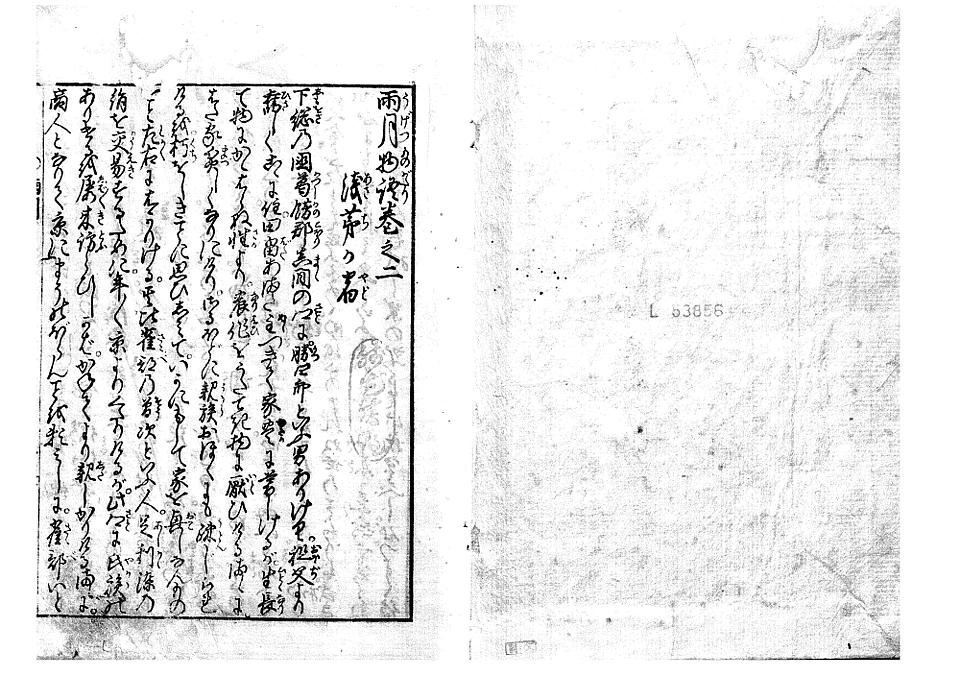 雨月物語巻之二
浅茅が宿
下総の国葛餝郡真間の郷に勝四郎といふ男ありけり。祖父より
旧しくこゝに住田畠あまた主づきて家豊に暮しけるが生長
て物にかゝはらぬ性より。農作をうたてき物に厭ひけるまゝに
はた家貧しくなりにけり。さるほどに親族おほくにも疎じられ
けるを朽をしきことに思ひしみて。いかにもして家を興しなんものを
と左右にはかりける。其比雀部の曽次といふ人。足利染の
絹を交易するために。年々京よりくだりけるが。此郷に氏族の
ありけるを屡来訪らひしかば。かねてより親しかりけるまゝに。
商人となりて京にまうのぼらんことを頼みしに。雀部いと
L 53856